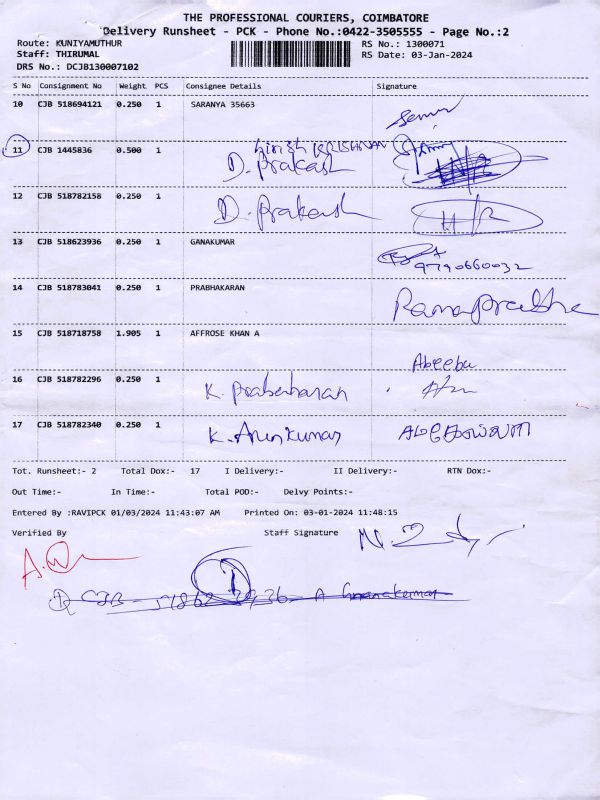 THE PROFESSIONAL COURIERS, COIMBATORE
Delivery Runsheet - PCK - Phone No.:0422-3505555 - Page No.:2
Route: KUNIYAMUTHUR RS No.: 1300071
Staff: THIRUMAL RS Date: 03-Jan-2024
DRS No.: DCJB130007102
S No Consignment No Weight PCS Consignee Details Signature
10 CJB 518694121 0.250 1 SARANYA 35663
Girish KRISHNAN
11 CJB 1445836 0.500 1 D. Prakash
12 CJB 518782158 0.250 1 D. Prakash
13 CJB 518623936 0.250 1 GANAKUMAR
9790660032
14 CJB 518783041 0.250 1 PRABHAKARAN Ramaprabha
15 CJB 518718758 1.905 1 AFFROSE KHAN A
Abeebu
16 CJB 518782296 0.250 1 K. Prabaharan
17 CJB 518782340 0.250 1 K. Arunkumar
Tot. Runsheet:- 2 Total Dox:- 17 I Delivery:- II Delivery:- RTN Dox:-
Out Time:- In Time:- Total POD:- Delvy Points:-
Entered By :RAVIPCK 01/03/2024 11:43:07 AM Printed On: 03-01-2024 11:48:15
Verified By Staff Signature